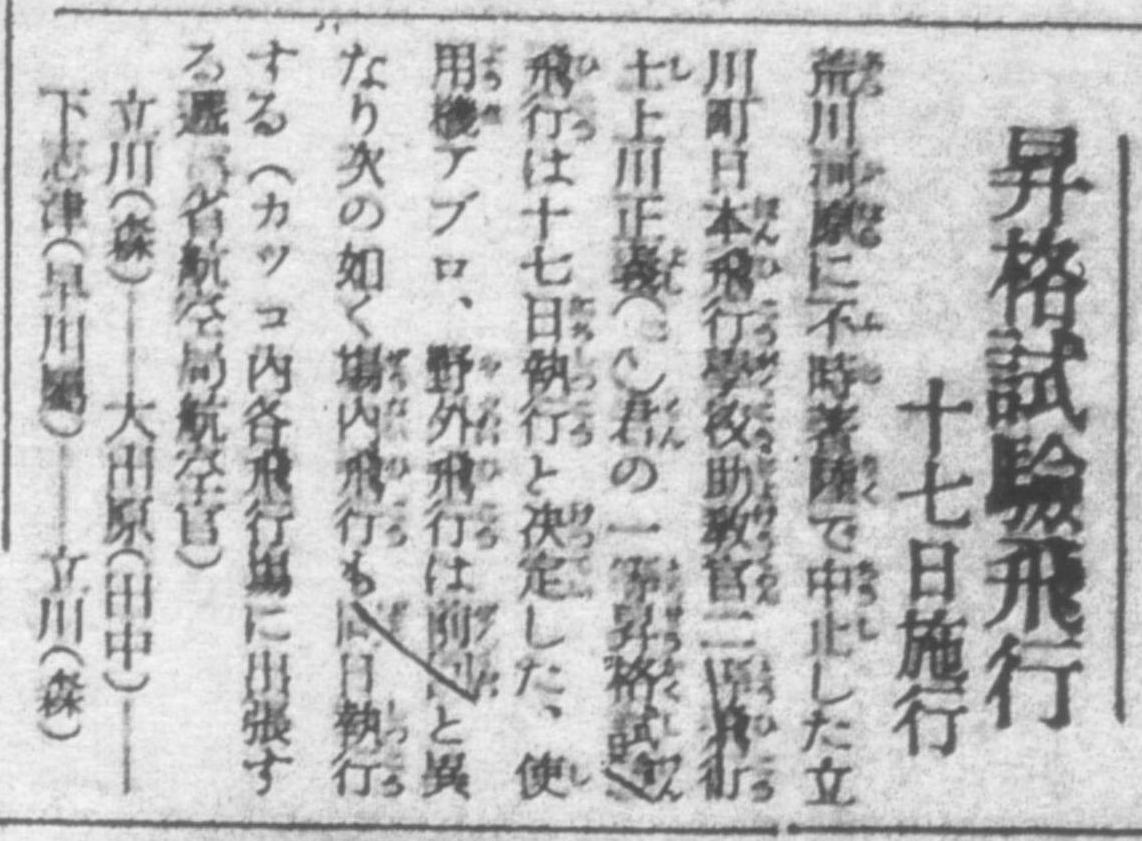 昇格試驗飛行
十七日施行
荒川河原に不時着陸で中止した立
川町日本飛行學校助敎官二等飛行
士上川正義()君の一等昇格試驗
飛行は十七日執行と決定した、使
用機アブロ、野外飛行は前回と異
なり次の如く場内飛行も同日執行
する（カツコ内各飛行場に出張す
る遞信省航空局航空官）
立川（森）——大田原（田中）——
下志津（早川）——立川（森）